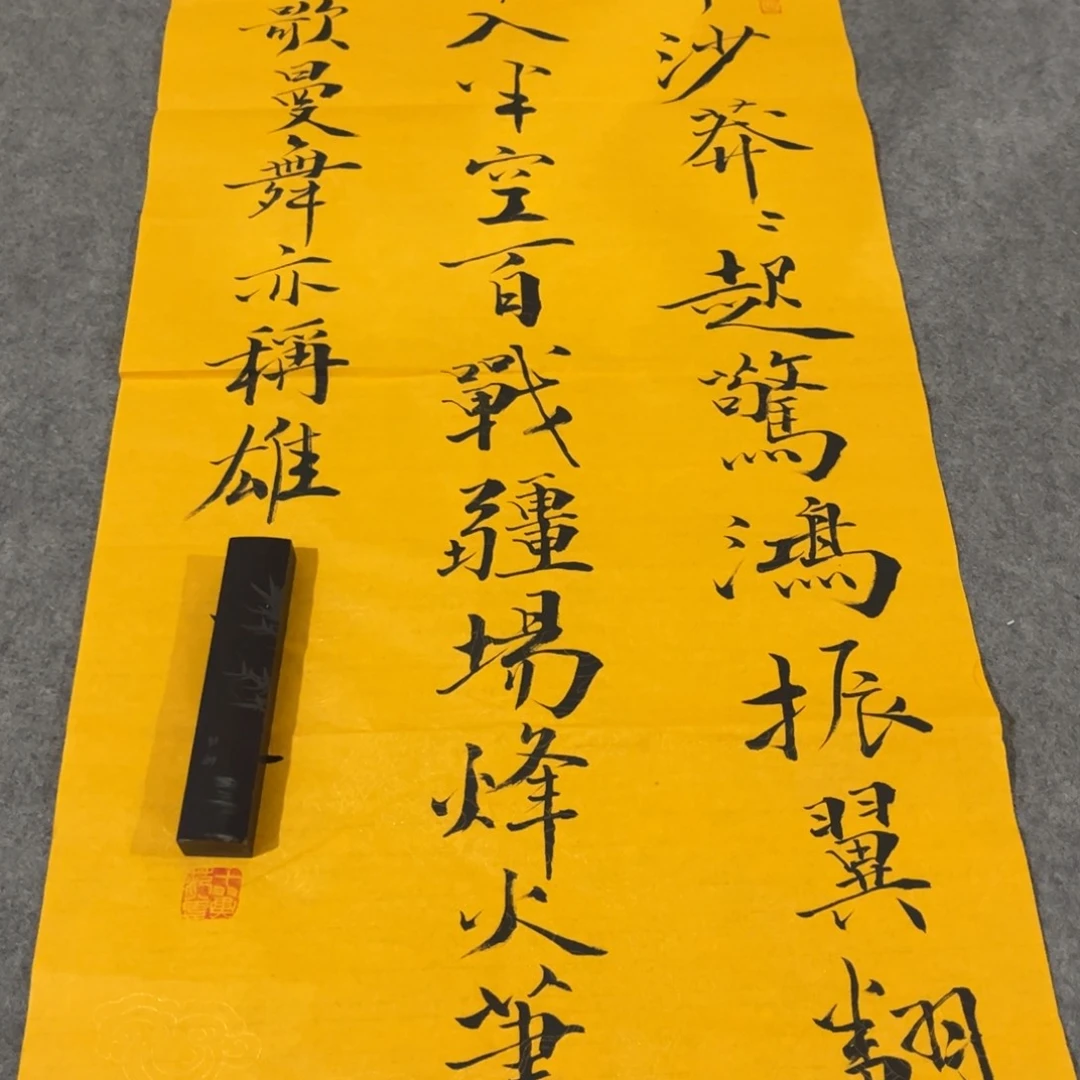 沙莽〻起驚鴻振翼翻
入半空百戰疆場烽火筆
歌曼舞亦稱雄